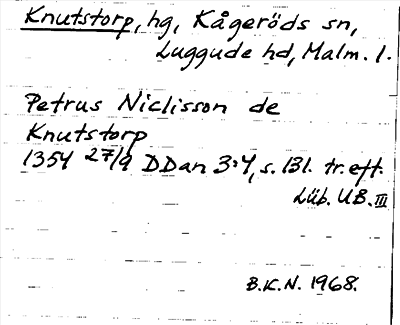 Knutstorp, hg, Kågeröds sn,
Luggude hd, Malm. l.
Petrus Niclisson de
Knutstorp
1354 27/9 DDan 3:4, s. 131. tr. eft.
Lüb. UB. III
B.K.N. 1968.